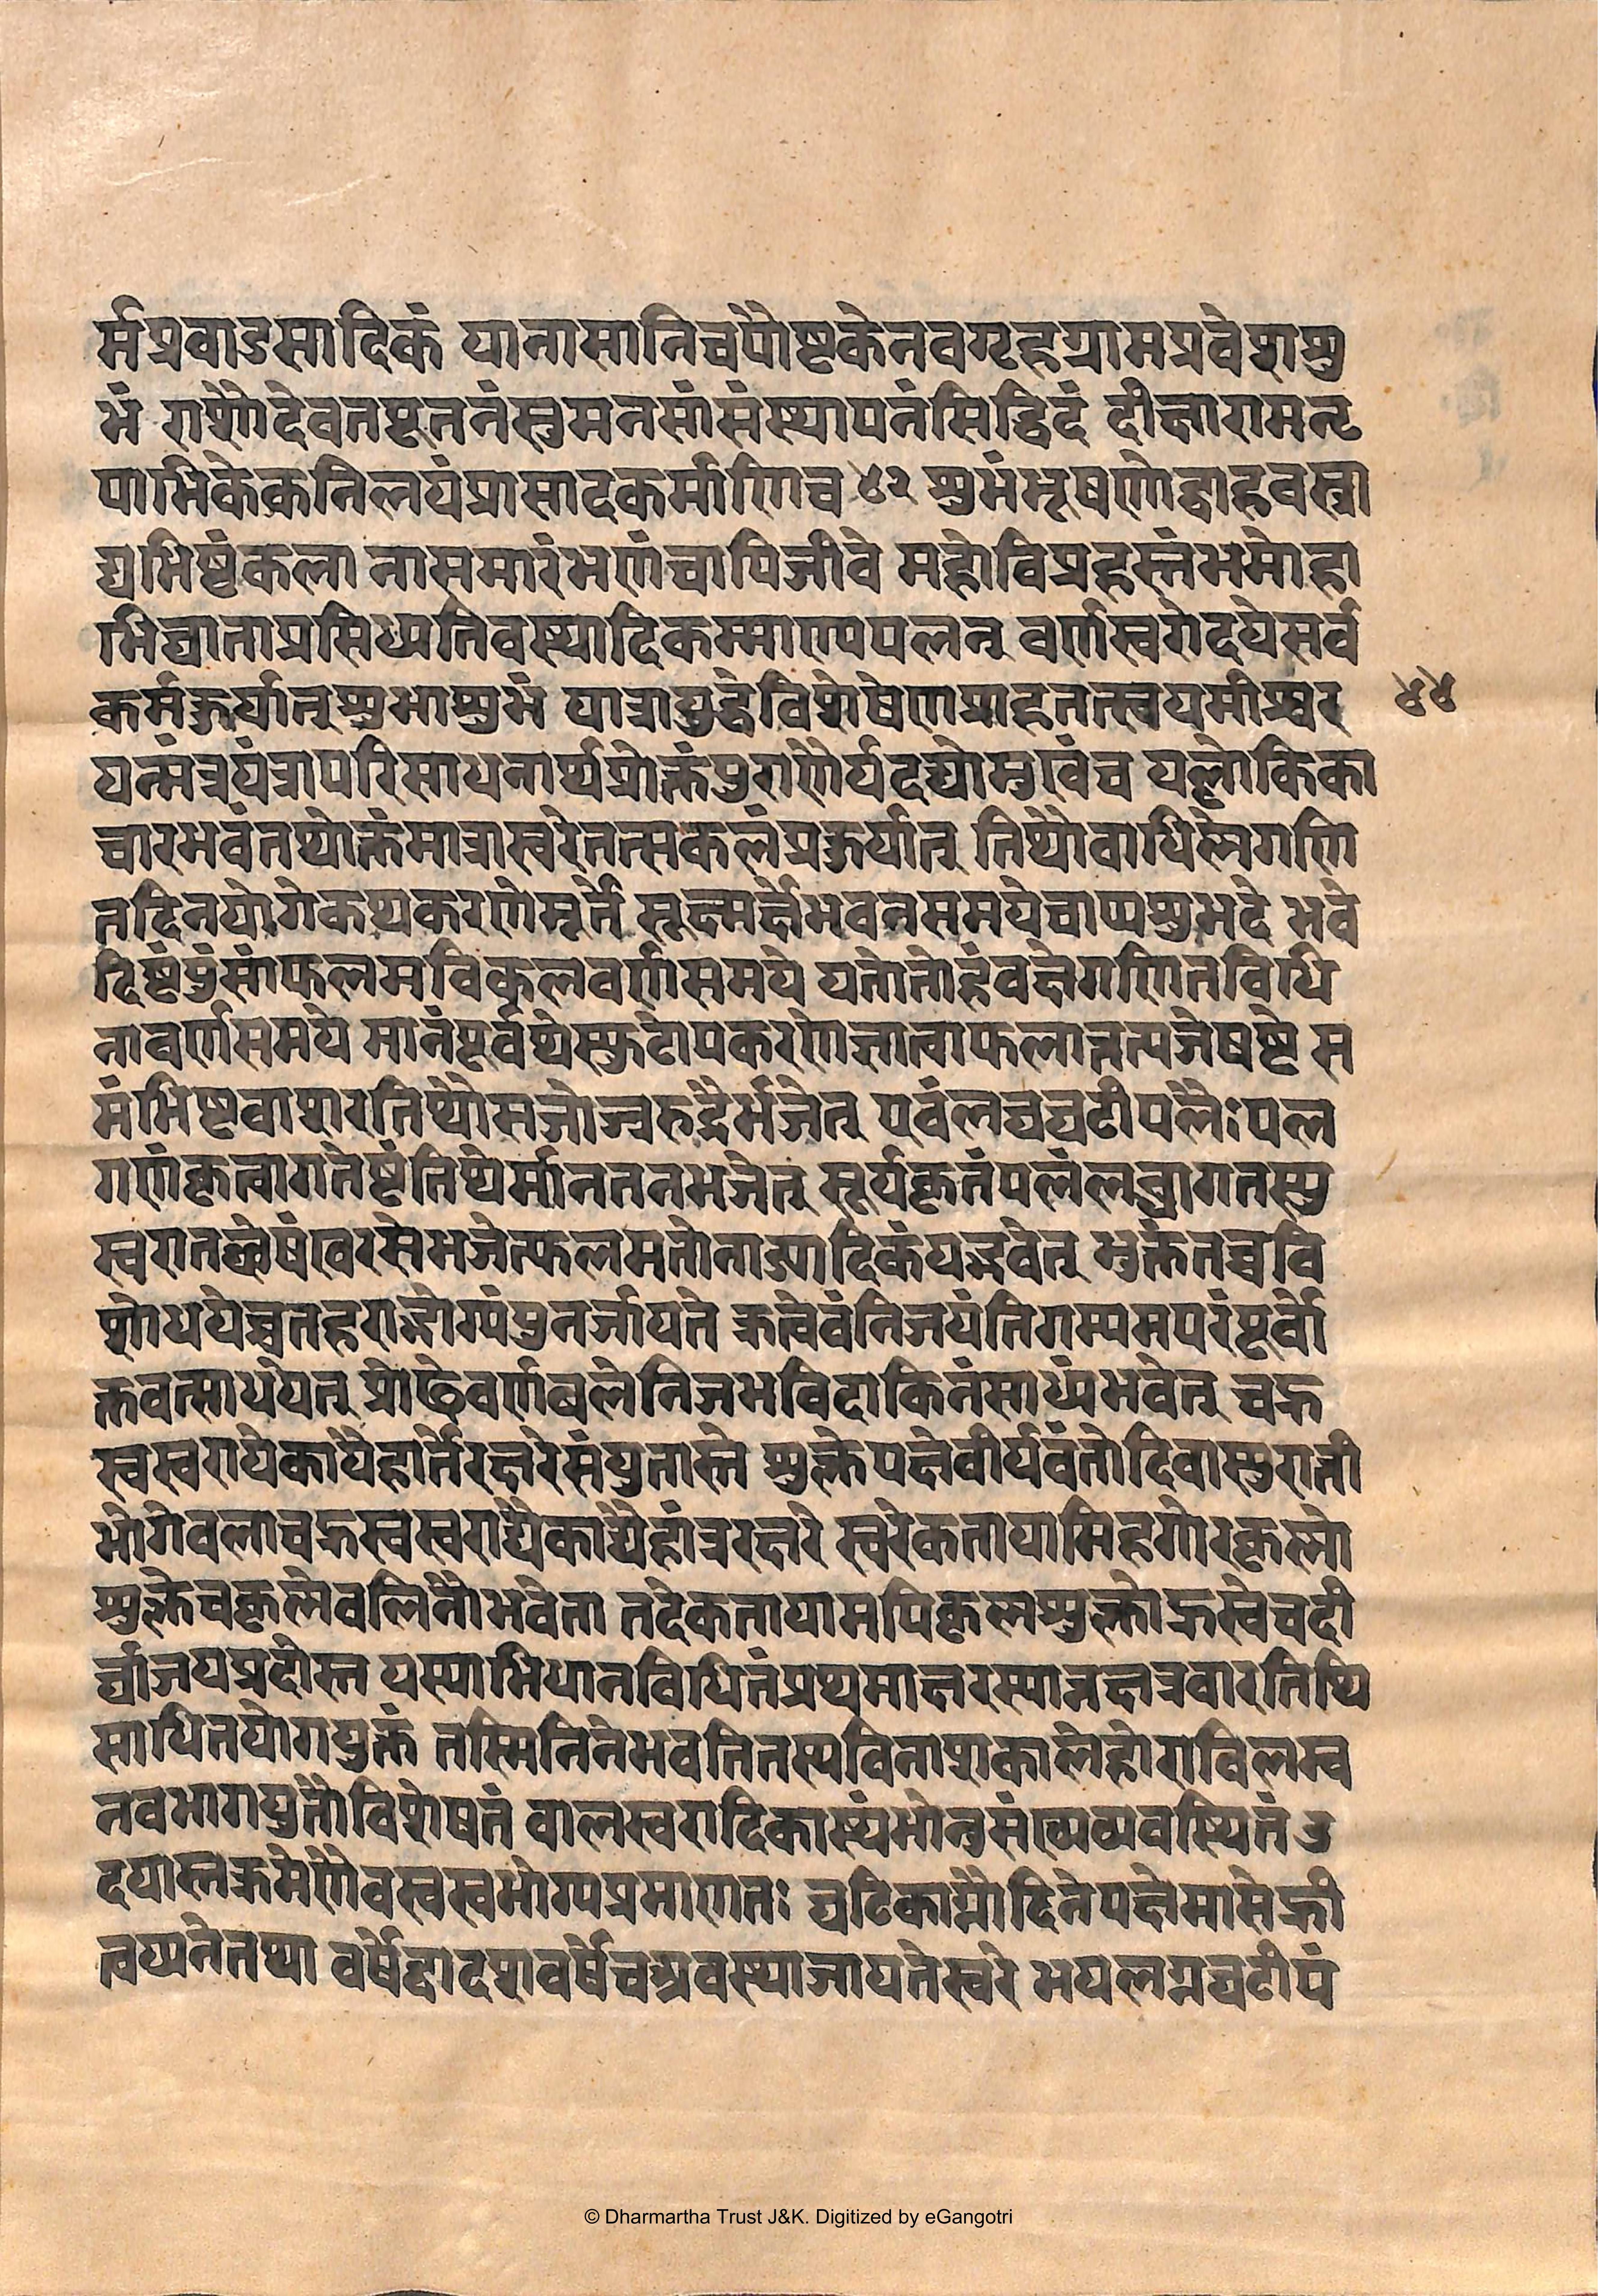 र्मप्रवाऽसादिकं यानासानिचपौष्टकेनवगृहग्रामप्रवेशशु
भं राशौदेवतपूजनंसुमनसांसंस्थापनंसिद्धिदं दीक्षारामनृ
पाभिकेकनिलयंप्रासादकर्माणिच ४२ शुभंभूषणोद्वाहवस्त्रा
द्यभिष्टंकला नासमारंभणंचापिजीवे महोविप्रहस्तंभमोहा
भिघाताप्रसिध्यतिवस्यादिकम्माण्यपलन् वर्णस्वरोदयेसर्व
कर्मकुर्यात्शुभाशुभं यात्रायुद्धेविशेषेणप्राहतत्स्वयमीश्वर
४४
यन्मंत्रयंत्रापरिसाधनार्थप्रोक्तंपुराणैर्यदद्योमुखंच यल्लौकिका
चारभवंतथोक्तंमात्रास्वरेतत्सकलंप्रकुर्यात् तिथौवाधिस्नेगणि
तदिनयोगेकथकरणेमूर्ते सूक्ष्मर्क्षेभवनसमयेचाप्यशुभदे भवे
दिष्टंपुंसांफलमविकलवर्णसमये यतोतोहंवक्षेगणितविधि
नावर्णसमये मानंपूर्वथेस्फुटोपकरणेज्ञात्वाफलान्नत्यजेषष्टे स
मंभिष्टवाशरतिथौमजोज्वरुद्रैर्भजेत् पवंलघघटीपलैःपल
गणंकृत्वागतेष्टंतिथेर्मानततभजेत् सूर्यकृतंपलंलब्धागतस्यु
स्वरातछेषंखरसेभजेत्फलमतोनाड्यादिकंयद्भवेत् भुक्तंतच्चवि
शोधयेच्चतहराद्भोग्यंपुनर्जायते क्रत्वेवंनिजयंतिगम्यमपरंपूर्वो
क्तवत्साधयेत् प्रोढेवर्णबलेनिजभविदाकिनंसाध्यंभवेत् चह्र
स्वस्वरायेकाद्यैहार्तेरक्षरेसंयुतास्ते शुक्लेपक्षेवीर्यवंतोदिवासुरात्री
भोगेवलाचह्रस्वस्वराद्यैकाद्यैर्हांत्ररक्षरे स्वरेकतायामिहगौरकृष्णो
शुक्लेचकृष्णेवलिनौभवेता तदेकतायामपिकृष्णशुक्लोह्रस्वेचदी
र्घाजयप्रदीस्त यस्याभिधानविधितंप्रथमाक्षरस्यान्नक्षत्रवारतिथि
साधितयोगयुक्तं तस्मिनिनेभवतितस्यविनाशकालेहोराविलस्व
नवभागयुतौविशेषतं वालस्वरादिकास्थंभोनुसंख्यव्यवस्थितं उ
दयास्तक्रमेणैवस्वस्वभोग्यप्रमाणतः घटिकाग्नौदिनेपक्षेमासेऋती
त्वयनेतथा वर्षेद्वादशवर्षेचअवस्थाजायतेस्वरे भपलग्नघटीपं
© Dharmartha Trust J&K. Digitized by eGangotri